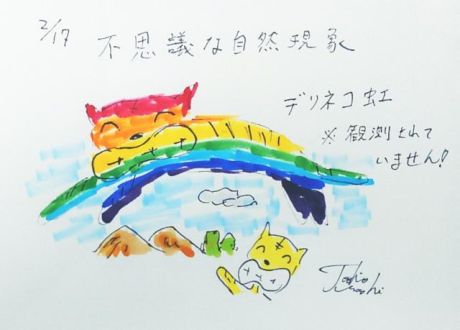 2/17
不思議な自然現象
デリネコ虹
※観測されて
いません!